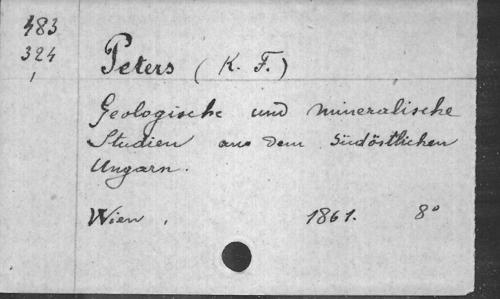 483
324
1
Peters (K. F.)
Geologische und mineralische
Studien aus dem südöstlichen
Ungarn.
Wien, 1861. 8°